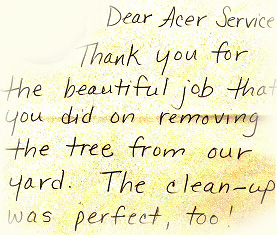 Dear Acer Service
Thank you for
the beautiful job that
you did on removing
the tree from our
yard. The clean-up
was perfect, too!